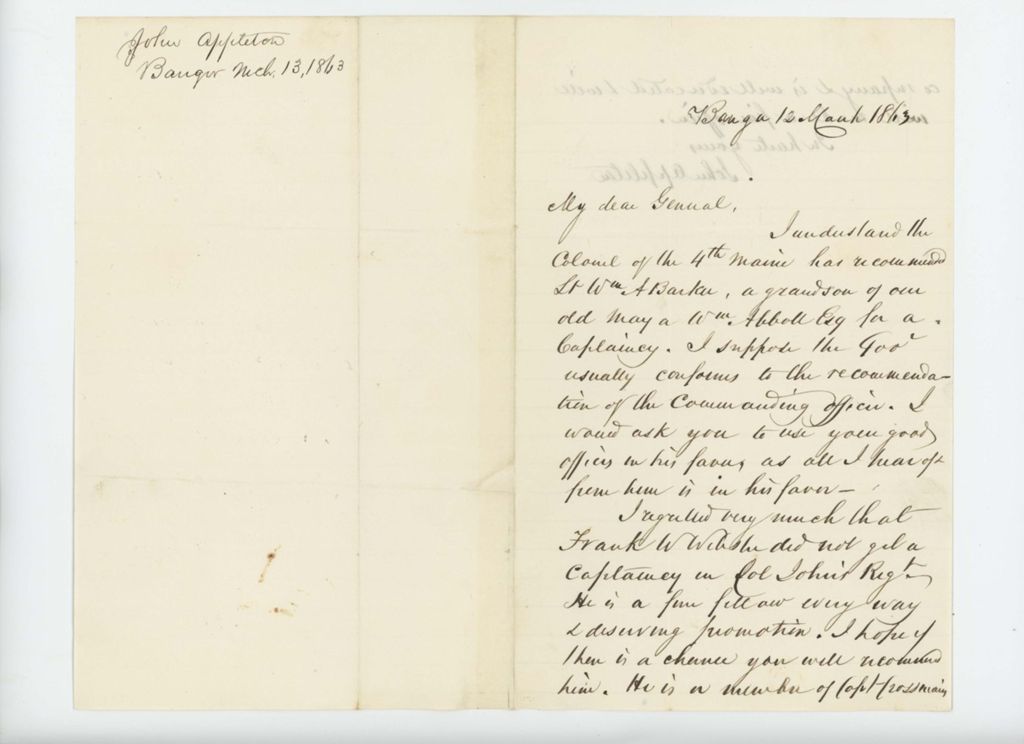 John Appleton
Bangor Mch. 13, 1863
Bangor 12 March 1863
My dear General,
I understand the
Colonel of the 4th Maine has recommended
Lt Wm A Barker, a grandson of our
old Mayor Wm. Abbott Esq for a
Captaincy. I suppose the Govr
usually conforms to the recommenda-
tion of the Commanding officer. I
would ask you to use your good
offices in his favor, as all I hear of &
from him is in his favor —
I regretted very much that
Frank W Webster did not get a
Captaincy in Col John's Regt.
He is a fine fellow every way
& deserving promotion. I hope if
there is a chance you will recommend
him. He is a member of Capt Crossmans
company & is well educated & will
In haste yours
John Appleton